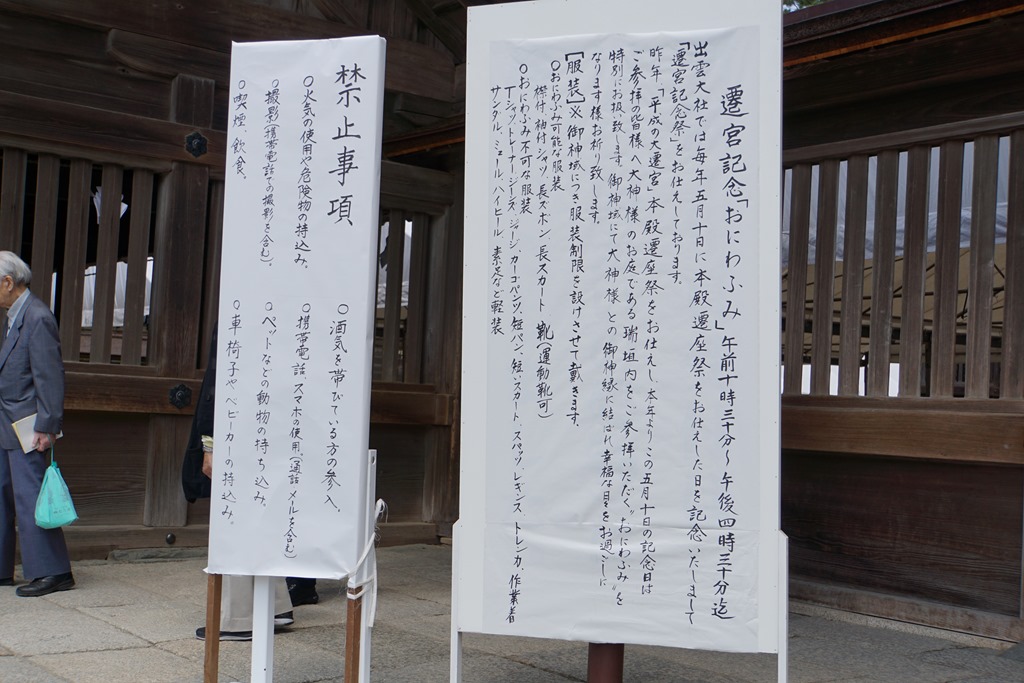 遷宮記念「おにわふみ」午前十時三十分～午後四時三十分迄
出雲大社では毎年五月十日に本殿遷座祭をお仕えした日を記念いたしまして
「遷宮記念祭」をお仕えしております。
昨年、「平成の大遷宮」本殿遷座祭をお仕えし、本年よりこの五月十日の記念日は
ご参拝の皆様へ大神様のお庭である瑞垣内をご参拝いただく〝おにわふみ〟を
特別にお扱い致します。御神域にて大神様との御神縁に結ばれ幸福な日々をお過ごしに
なります様お祈り致します。
【服装】※御神域につき服装制限を設けさせて戴きます。
○おにわふみ可能な服装
襟付・袖付シャツ、長ズボン、長スカート 靴(運動靴可)
○おにわふみ不可な服装
Tシャツ、トレーナー、ジーンズ、ジャージ、カーゴパンツ、短パン、短いスカート、スパッツ、レギンス、トレンカ、作業着
サンダル、ミュール、ハイヒール、素足など軽装
禁止事項
○火気の使用や危険物の持込み。
○撮影(携帯電話での撮影を含む)。
○喫煙、飲食。
○酒気を帯びている方の参入。
○携帯電話、スマホの使用、(通話、メールを含む)
○ペットなどの動物の持ち込み。
○車椅子やベビーカーの持込み。